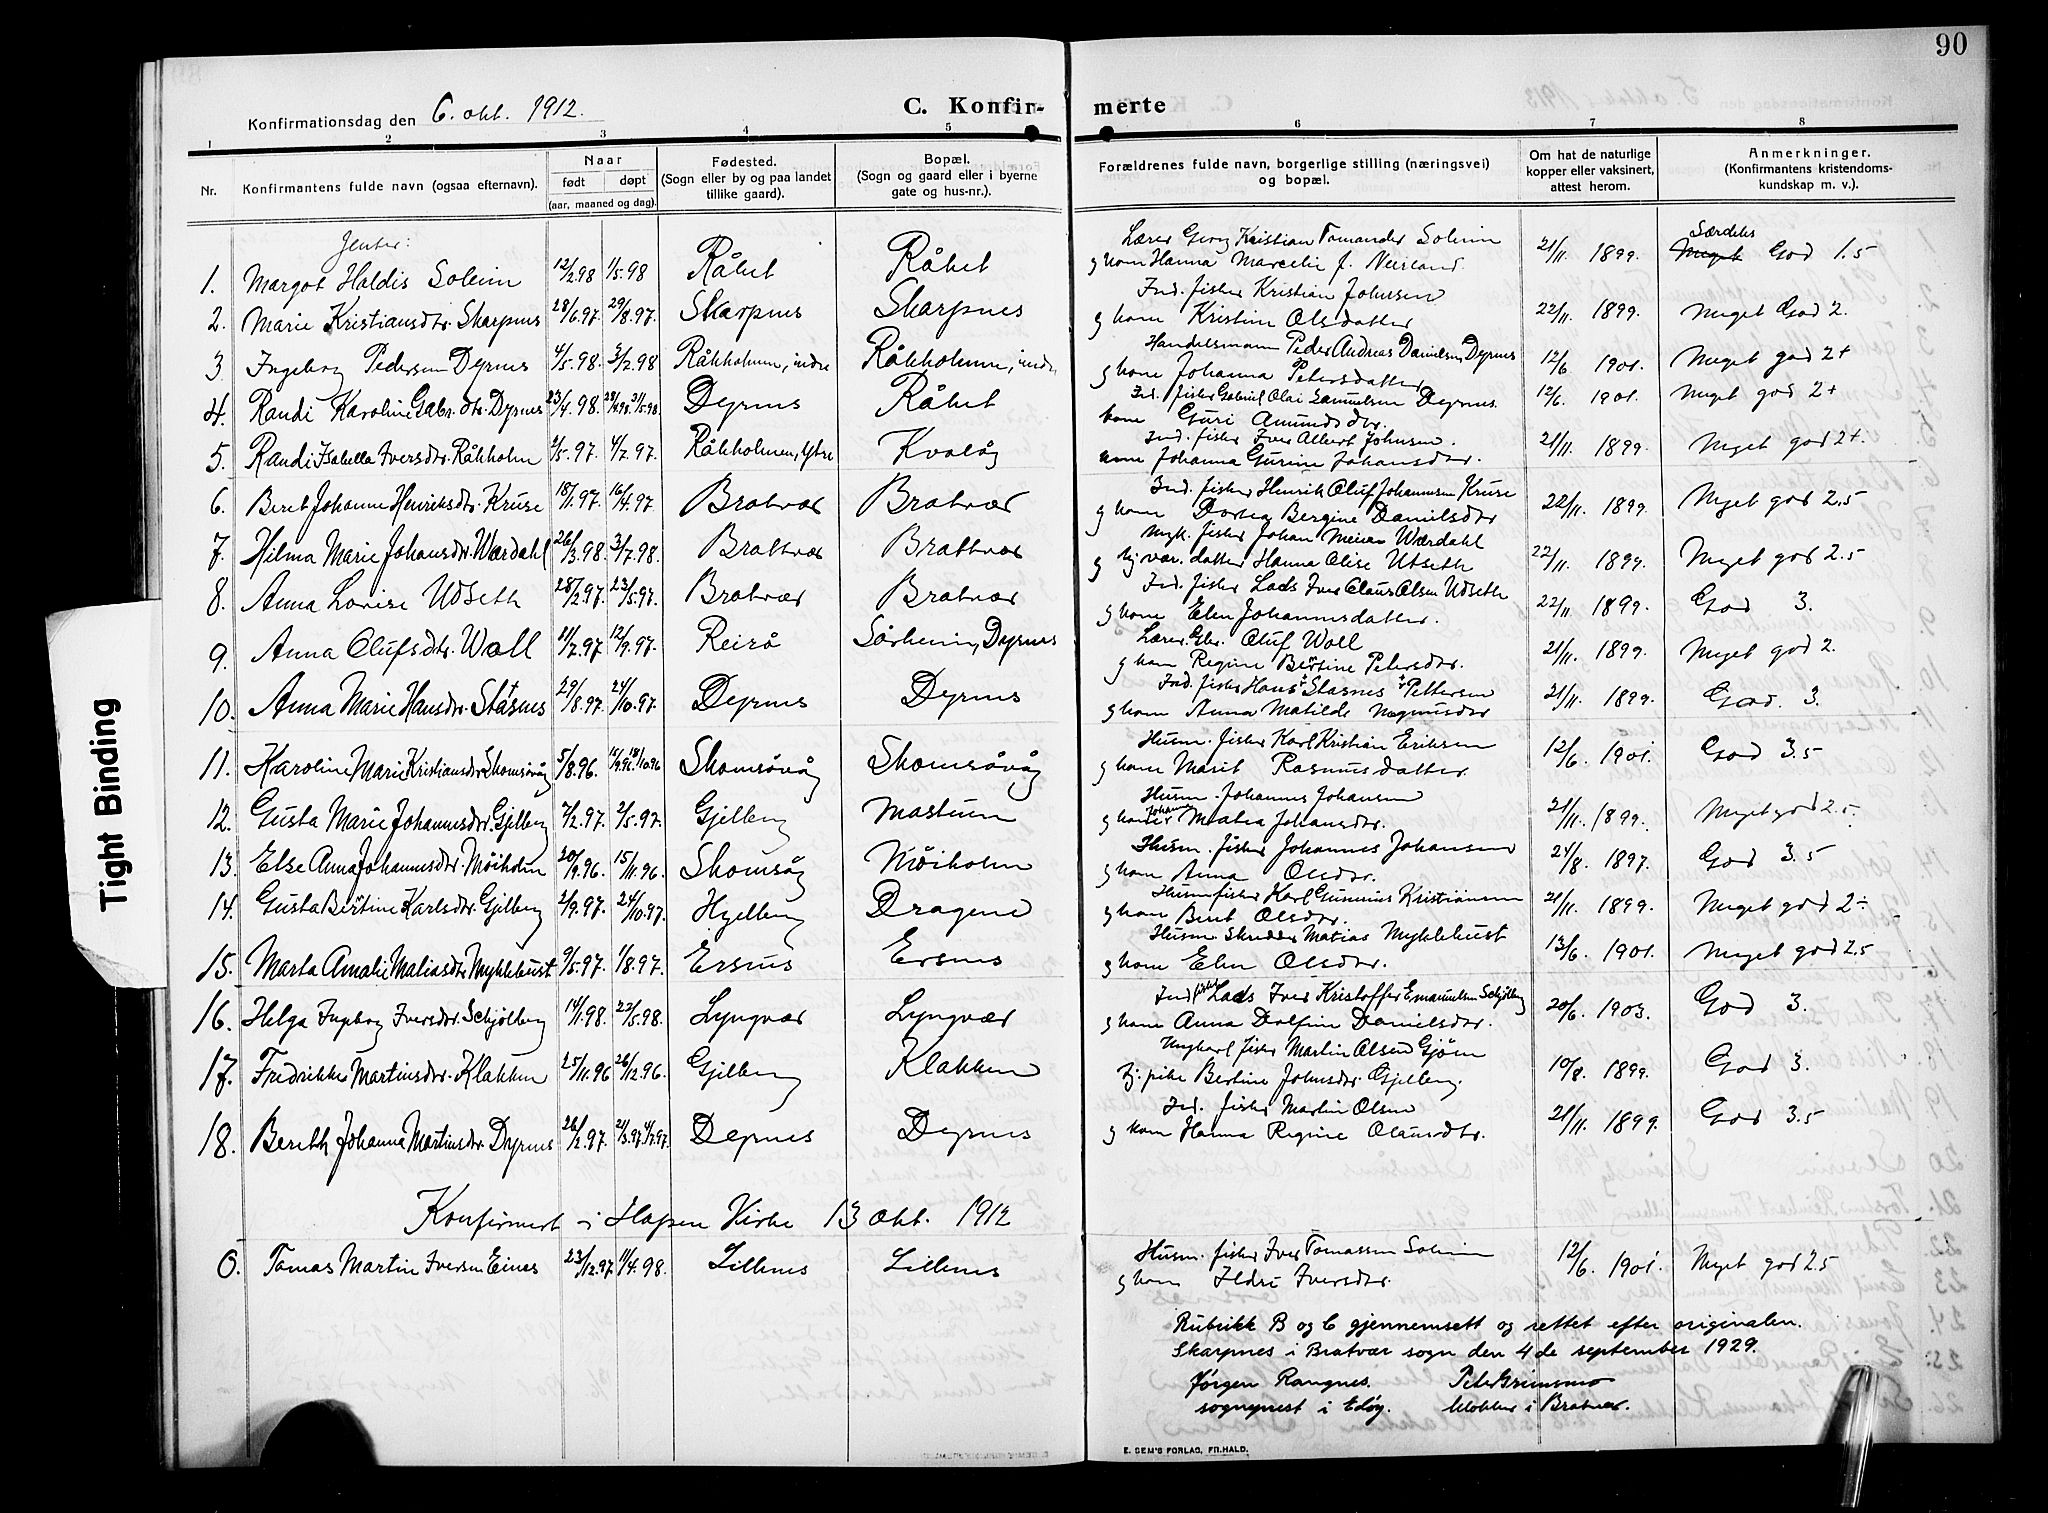 90
Konfirmationsdag den 6. okt. 1912.
C. Konfir-merte
1 2 3 4 5 6 7 8
Nr. Konfirmantens fulde navn (ogsaa efternavn). Naar født døpt (aar, maaned og dag). Fødested. (Sogn eller by og paa landet tillike gaard). Bopæl. (Sogn og gaard eller i byerne gate og hus-nr.). Forældrenes fulde navn, borgerlige stilling (næringsvei) og bopæl. Om hat de naturlige kopper eller vaksinert, attest herom. Anmerkninger. (Konfirmantens kristendoms-kundskap m. v.).
Jenter:
1. Margot Haldis Soleim 12/2 98 1/5 98 Råket Råket Lærer Georg Kristian Tomander Soleim 21/11 1899. Særdeles Meget God 1.5
g kone Hanna Marcelie f. Neisland.
2. Marie Kristiansdtr. Skarpnes 28/6 97. 29/8 97. Skarpnes Skarpnes Ind. fisker Kristian Johnsen 22/11 1899. Meget God 2.
g kone Kristine Olsdatter
3. Ingeborg Pedersen Dyrnes 4/5 98. 3/7 98 Råkholmen, indre Råkholmen, indre Handelsmann Peder Andreas Danielsen Dyrnes 12/6 1901. Meget god 2+
g kone Johanna Petersdatter
4. Randi Karoline Gabr.dtr. Dyrnes 23/4 98. 28/4 98. 31/5 98 Dyrnes Råket Ind. fisker Gabriel Olai Samuelsen Dyrnes. 12/6 1901. Meget god 2+
kone Guri Amundsdtr.
5. Randi Isabella Iversdtr. Råkholm 2/5. 97. 4/7 97. Råkholmen, Ytre Kvalåg Ind. fisker Iver Albert Johnsen. 21/11 1899. Meget god 2+.
kone Johanna Gurine Johansdtr.
6. Beret Johanne Henriksdtr. Kruse 18/1 97. 16/4 97. Bratvær Bratvær Ind. fisker Henrik Oluf Johannesen Kruse 22/11 1899. Meget god 2.5
g kone Dortea Bergine Danielsdtr
7. Hilma Marie Johansdtr. Wærdahl 26/3 98. 3/7 98. Brattvær Brattvær Ungk. fisker Johan Meier Wærdahl 22/11 1899. Meget god 2.5
g hj.vær. datter Hanna Olise Utseth
8. Anna Lovise Udseth 28/2 97. 23/5 97. Bratvær Bratvær Ind. fisker Lads Iver Claus Olsen Udseth 22/11 1899. God 3.
g kone Elen Johannesdatter.
9. Anna Olufsdtr. Woll 11/7 97 12/9 97. Reirå Sørheim, Dyrnes Lærer Ebr. Oluf Woll 21/11 1899. Meget god 2.
g kone Regine Bertine Petersdtr.
10. Anna Marie Hansdtr. Ståsnes 29/8 97. 24/10 97. Dyrnes Dyrnes Ind. fisker Hans Stasnes Pettersen 21/11 1899. God. 3.
g kone Anna Matilde Magnusdtr
11. Karoline Marie Kristiansdtr. Skomsøvåg 5/8 96. 15/9 96. 18/10 96 Skomsøvåg Skomsøvåg Husm. fisker Karl Kristian Eriksen 12/6 1901. God 3.5
g kone Marit Rasmusdatter.
12. Gusta Marie Johannesdtr. Gjelberg 7/2 97. 2/5 97. Gjelberg Mastuen Husm. Johannes Johansen 21/11 1899. Meget god 2.5.
g kone Johanna Matea Johansdtr.
13. Else Anna Johannesdtr. Møiholm 20/9 96. 15/11 96. Skomsøg Møiholm Husm. fisker Johannes Johansen 24/8 1897. God 3.5
g kone Anna Olsdtr.
14. Gusta Bertine Karlsdtr. Gjelberg 2/9 97. 24/10 97. Hjelberg Dragene Husm fisker Karl Gunnius Kristiansen 21/11 1899. Meget god 2÷
g kone Berit Olsdtr.
15. Marta Amalie Matiasdtr Myklebust 9/5 97. 1/8 97. Ersnes Ersnes Husm Skredder Matias Myklebust 13/6 1901. Meget god 2.5
g kone Elen Olsdtr.
16. Helga Ingeborg Iversdtr. Schjølberg 14/1 98. 23/5 98. Lyngvær Lyngvær Ind fisker Lads Iver Kristoffer Emanuelsen Schjølberg 20/6 1903. God 3.
g kone Anna Dolfine Danielsdtr.
17. Fredrikke Martinsdtr. Klakken 25/11 96 26/12 96. Gjelberg Klakken Ungkarl fisker Martin Olsen Gjøen 10/8 1899. God 3.
hj. pike Bertine Johnsdtr. Gjelberg.
18. Bereth Johanna Martinsdtr. Dyrnes 26/2 97. 2/3 97. 4/7 97. Dyrnes Dyrnes Ind. fisker Martin Olsen 21/11 1899. God 3.5
g kone Hanna Regine Olausdtr.
Konfirmert i Hopen Kirke 13 okt. 1912
0. Tomas Martin Iversen Eines 23/12 97 11/4 98. Lillenes Lillenes Husm. fisker Iver Tomassen Soleim 12/6 1901. Meget god 2.5
g kone Ildri Iversdtr.
Rubrikk B og C gjennemsett og rettet efter originalen.
Skarpnes i Bratvær sogn den 4de september 1929.
Jørgen Rangnes. Peter Grimsmo
sogneprest i Edøy. klokker i Bratvær.
E. SEM'S FORLAG, FR.HALD.
Tight Binding